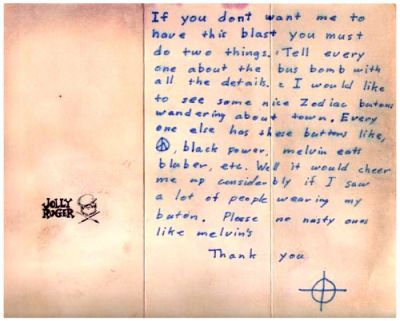 If you dont want me to
have this blast you must
do two things. Tell every
one about the bus bomb with
all the details. 2 I would like
to see some nice Zodiac butons
wandering about town. Every
one else has these buttons like,
☮, black power, melvin eats
bluber, etc. Well it would cheer
me up considerbly if I saw
a lot of people wearing my
buton. Please no nasty ones
like melvin's
Thank you
JOLLY
ROGER